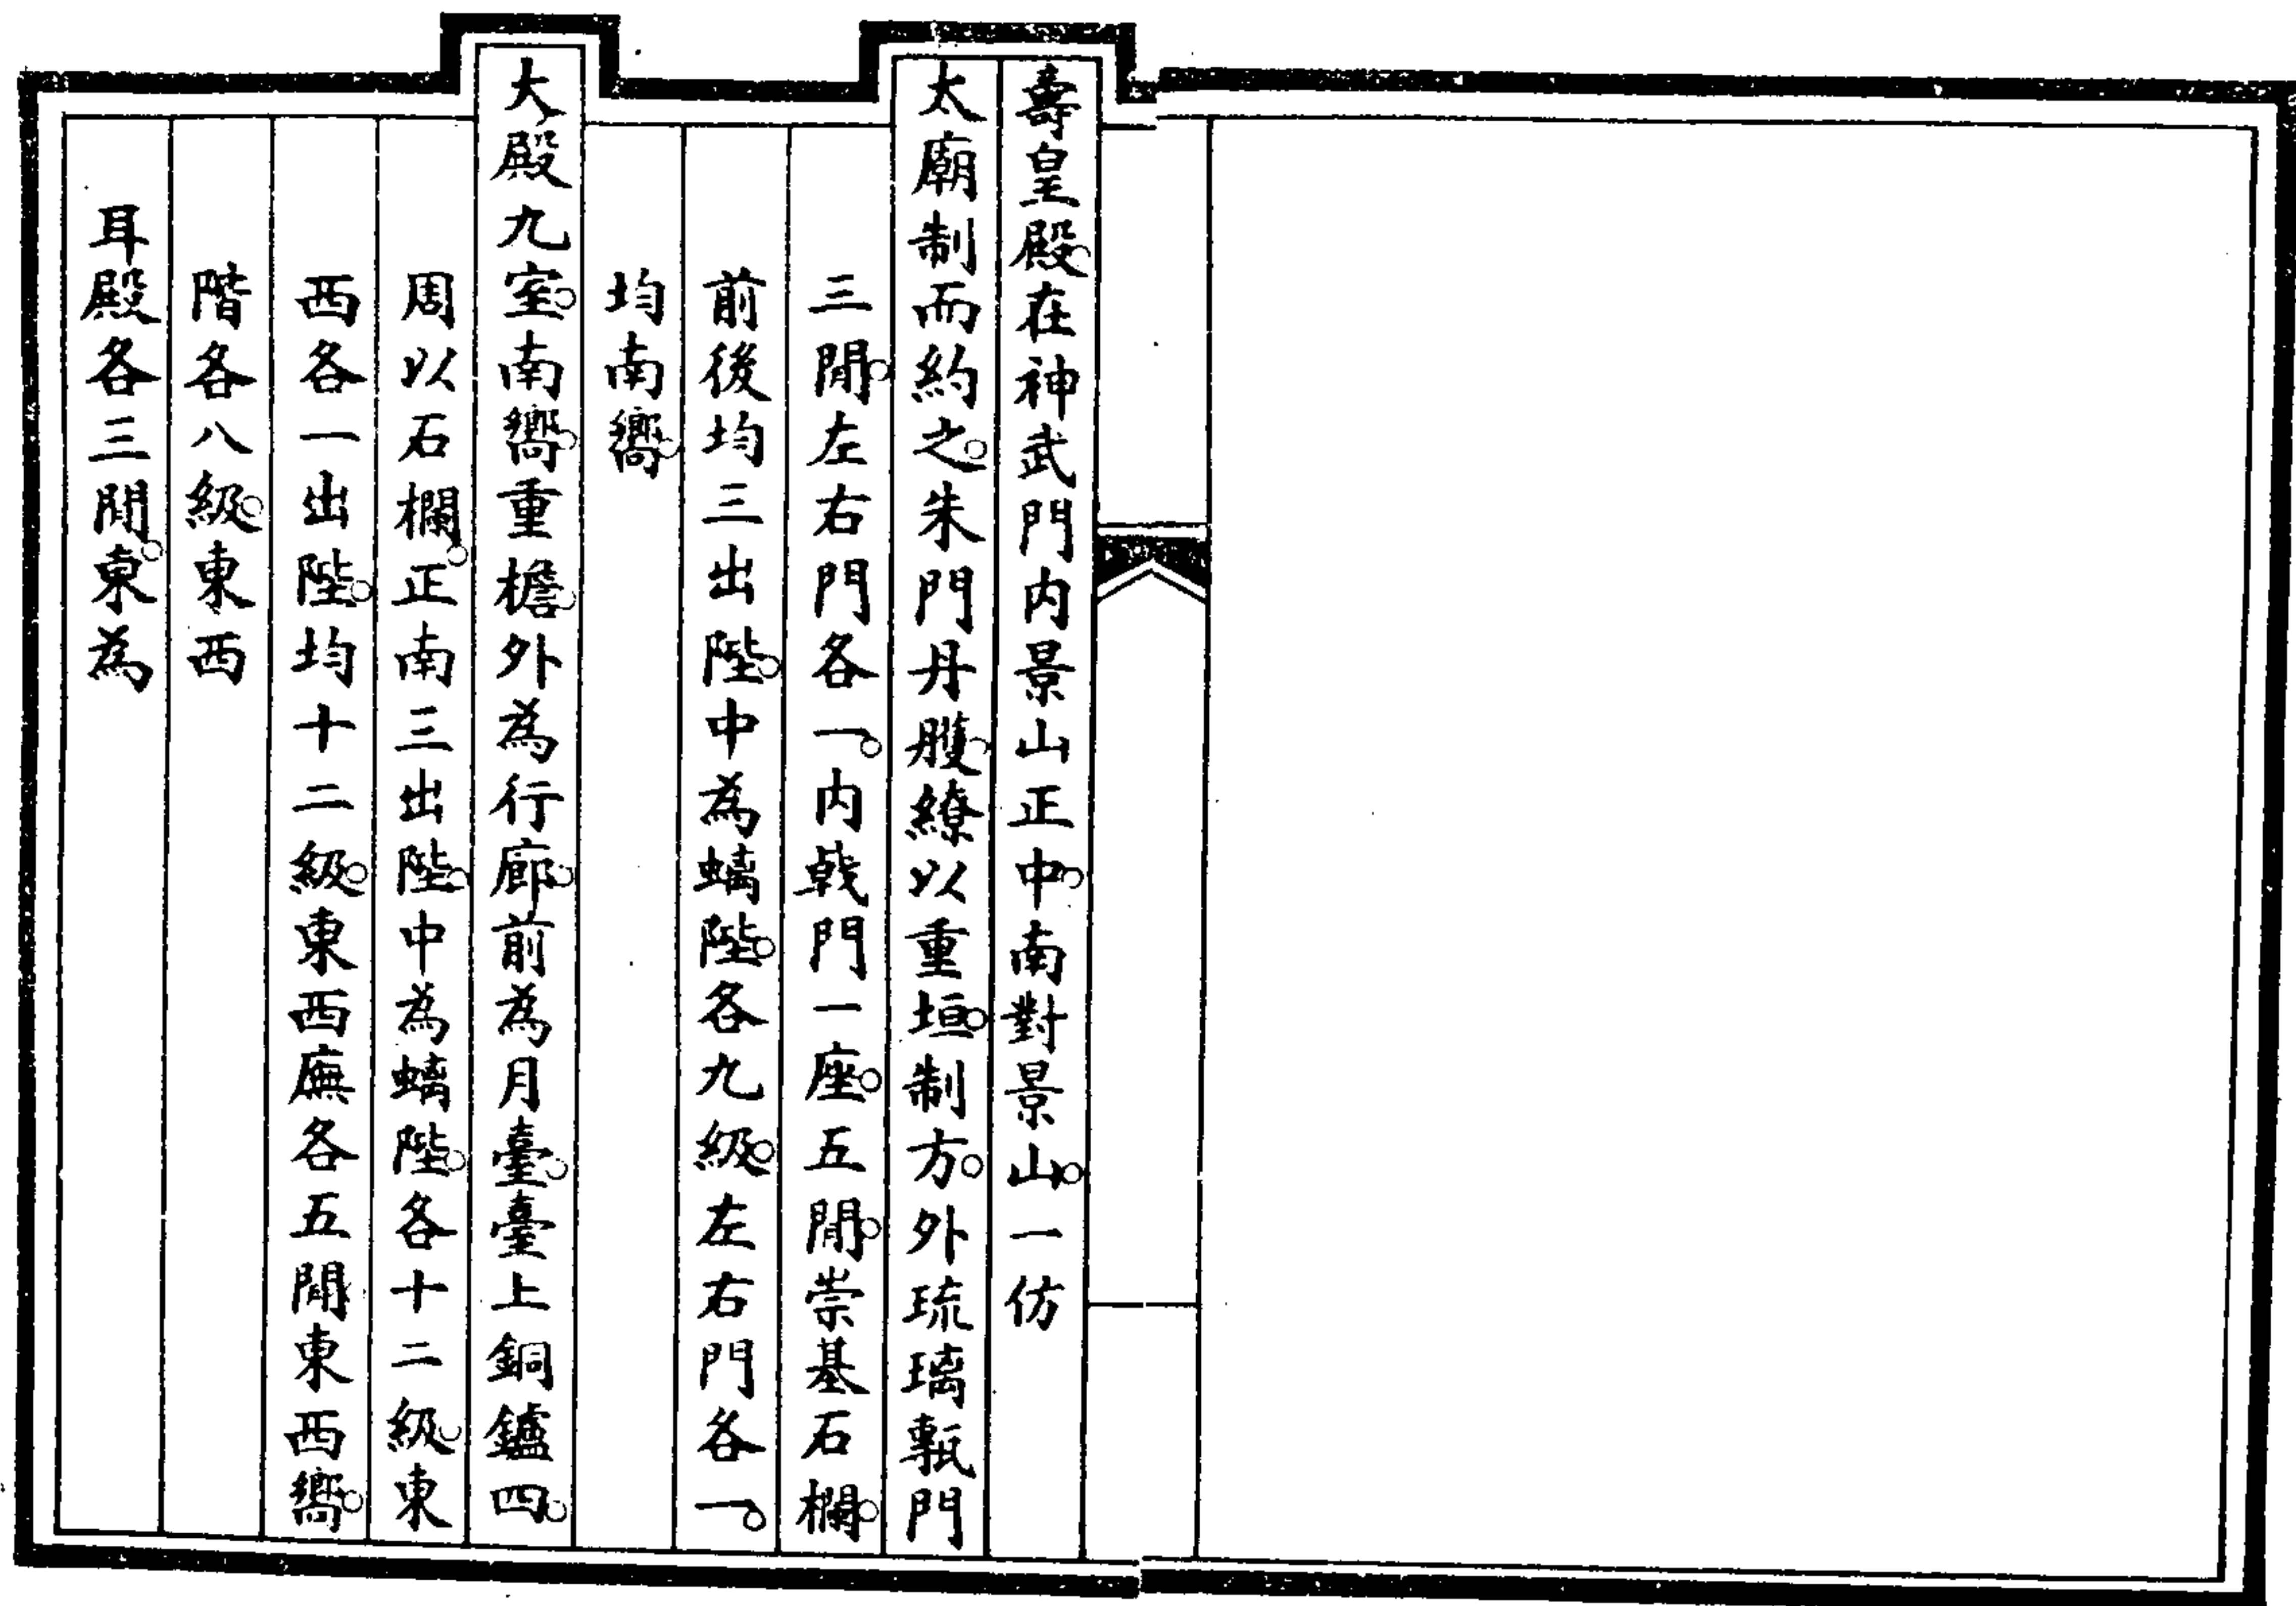 壽皇殿。在神武門内景山正中。南對景山。一仿
太廟制而約之。朱門丹雘。繚以重垣。制方。外琉璃甎門
三閒。左右門各一。内戟門一座。五閒。崇基石欄。
前後均三出陛。中為螭陛。各九級。左右門各一。
均南嚮。
大殿九室。南嚮。重檐。外為行廊。前為月臺。臺上銅鑪四。
周以石欄。正南三出陛。中為螭陛。各十二級。東
西各一出陛。均十二級。東西廡各五閒東西嚮。
階各八級。東西
耳殿各三閒。東為